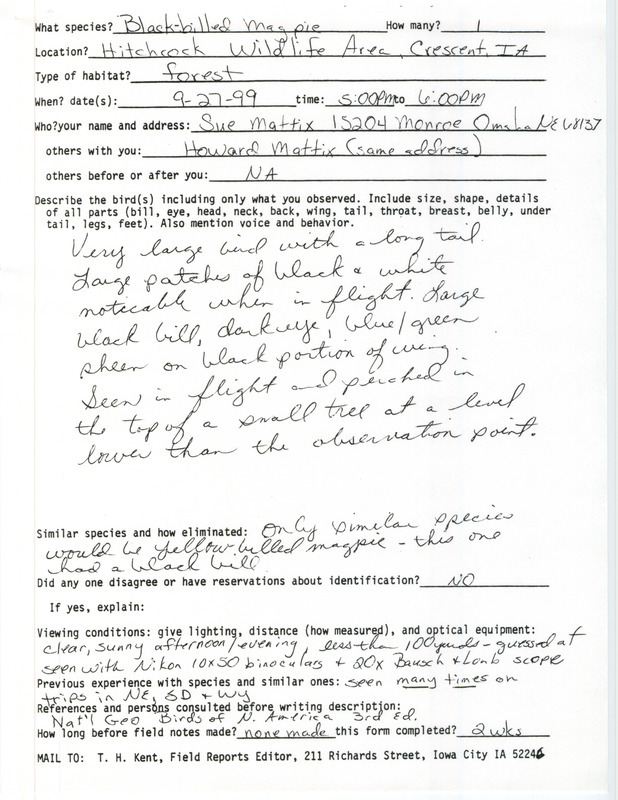 What species? Black-billed Magpie How many? 1
Location? Hitchcock Wildlife Area, Crescent, IA
Type of habitat? forest
When? date(s): 9-27-99 time: 5:00PM to 6:00PM
Who?your name and address: Sue Mattix 15204 Monroe Omaha NE 68137
others with you: Howard Mattix (same address)
others before or after you: NA
Describe the bird(s) including only what you observed. Include size, shape, details
of all parts (bill, eye, head, neck, back, wing, tail, throat, breast, belly, under
tail, legs, feet). Also mention voice and behavior.
Very large bird with a long tail.
Large patches of black & white
noticable when in flight. Large
black bill, dark eye, blue/green
sheen on black portion of wing.
Seen in flight and perched in
the top of a small tree at a level
lower than the observation point.
Similar species and how eliminated: Only similar species
would be yellow-billed magpie - this one
had a black bill.
Did any one disagree or have reservations about identification? NO
If yes, explain:
Viewing conditions: give lighting, distance (how measured), and optical equipment:
clear, sunny afternoon/evening, less than 100 yards - guessed at
seen with Nikon 10x50 binoculars + 20x Bausch & Lomb scope
Previous experience with species and similar ones: seen many times on
trips in NE, SD & WY
References and persons consulted before writing description:
Nat'l Geo Birds of N. America 3rd Ed.
How long before field notes made? none made this form completed? 2 wks
MAIL TO: T. H. Kent, Field Reports Editor, 211 Richards Street, Iowa City IA 52246